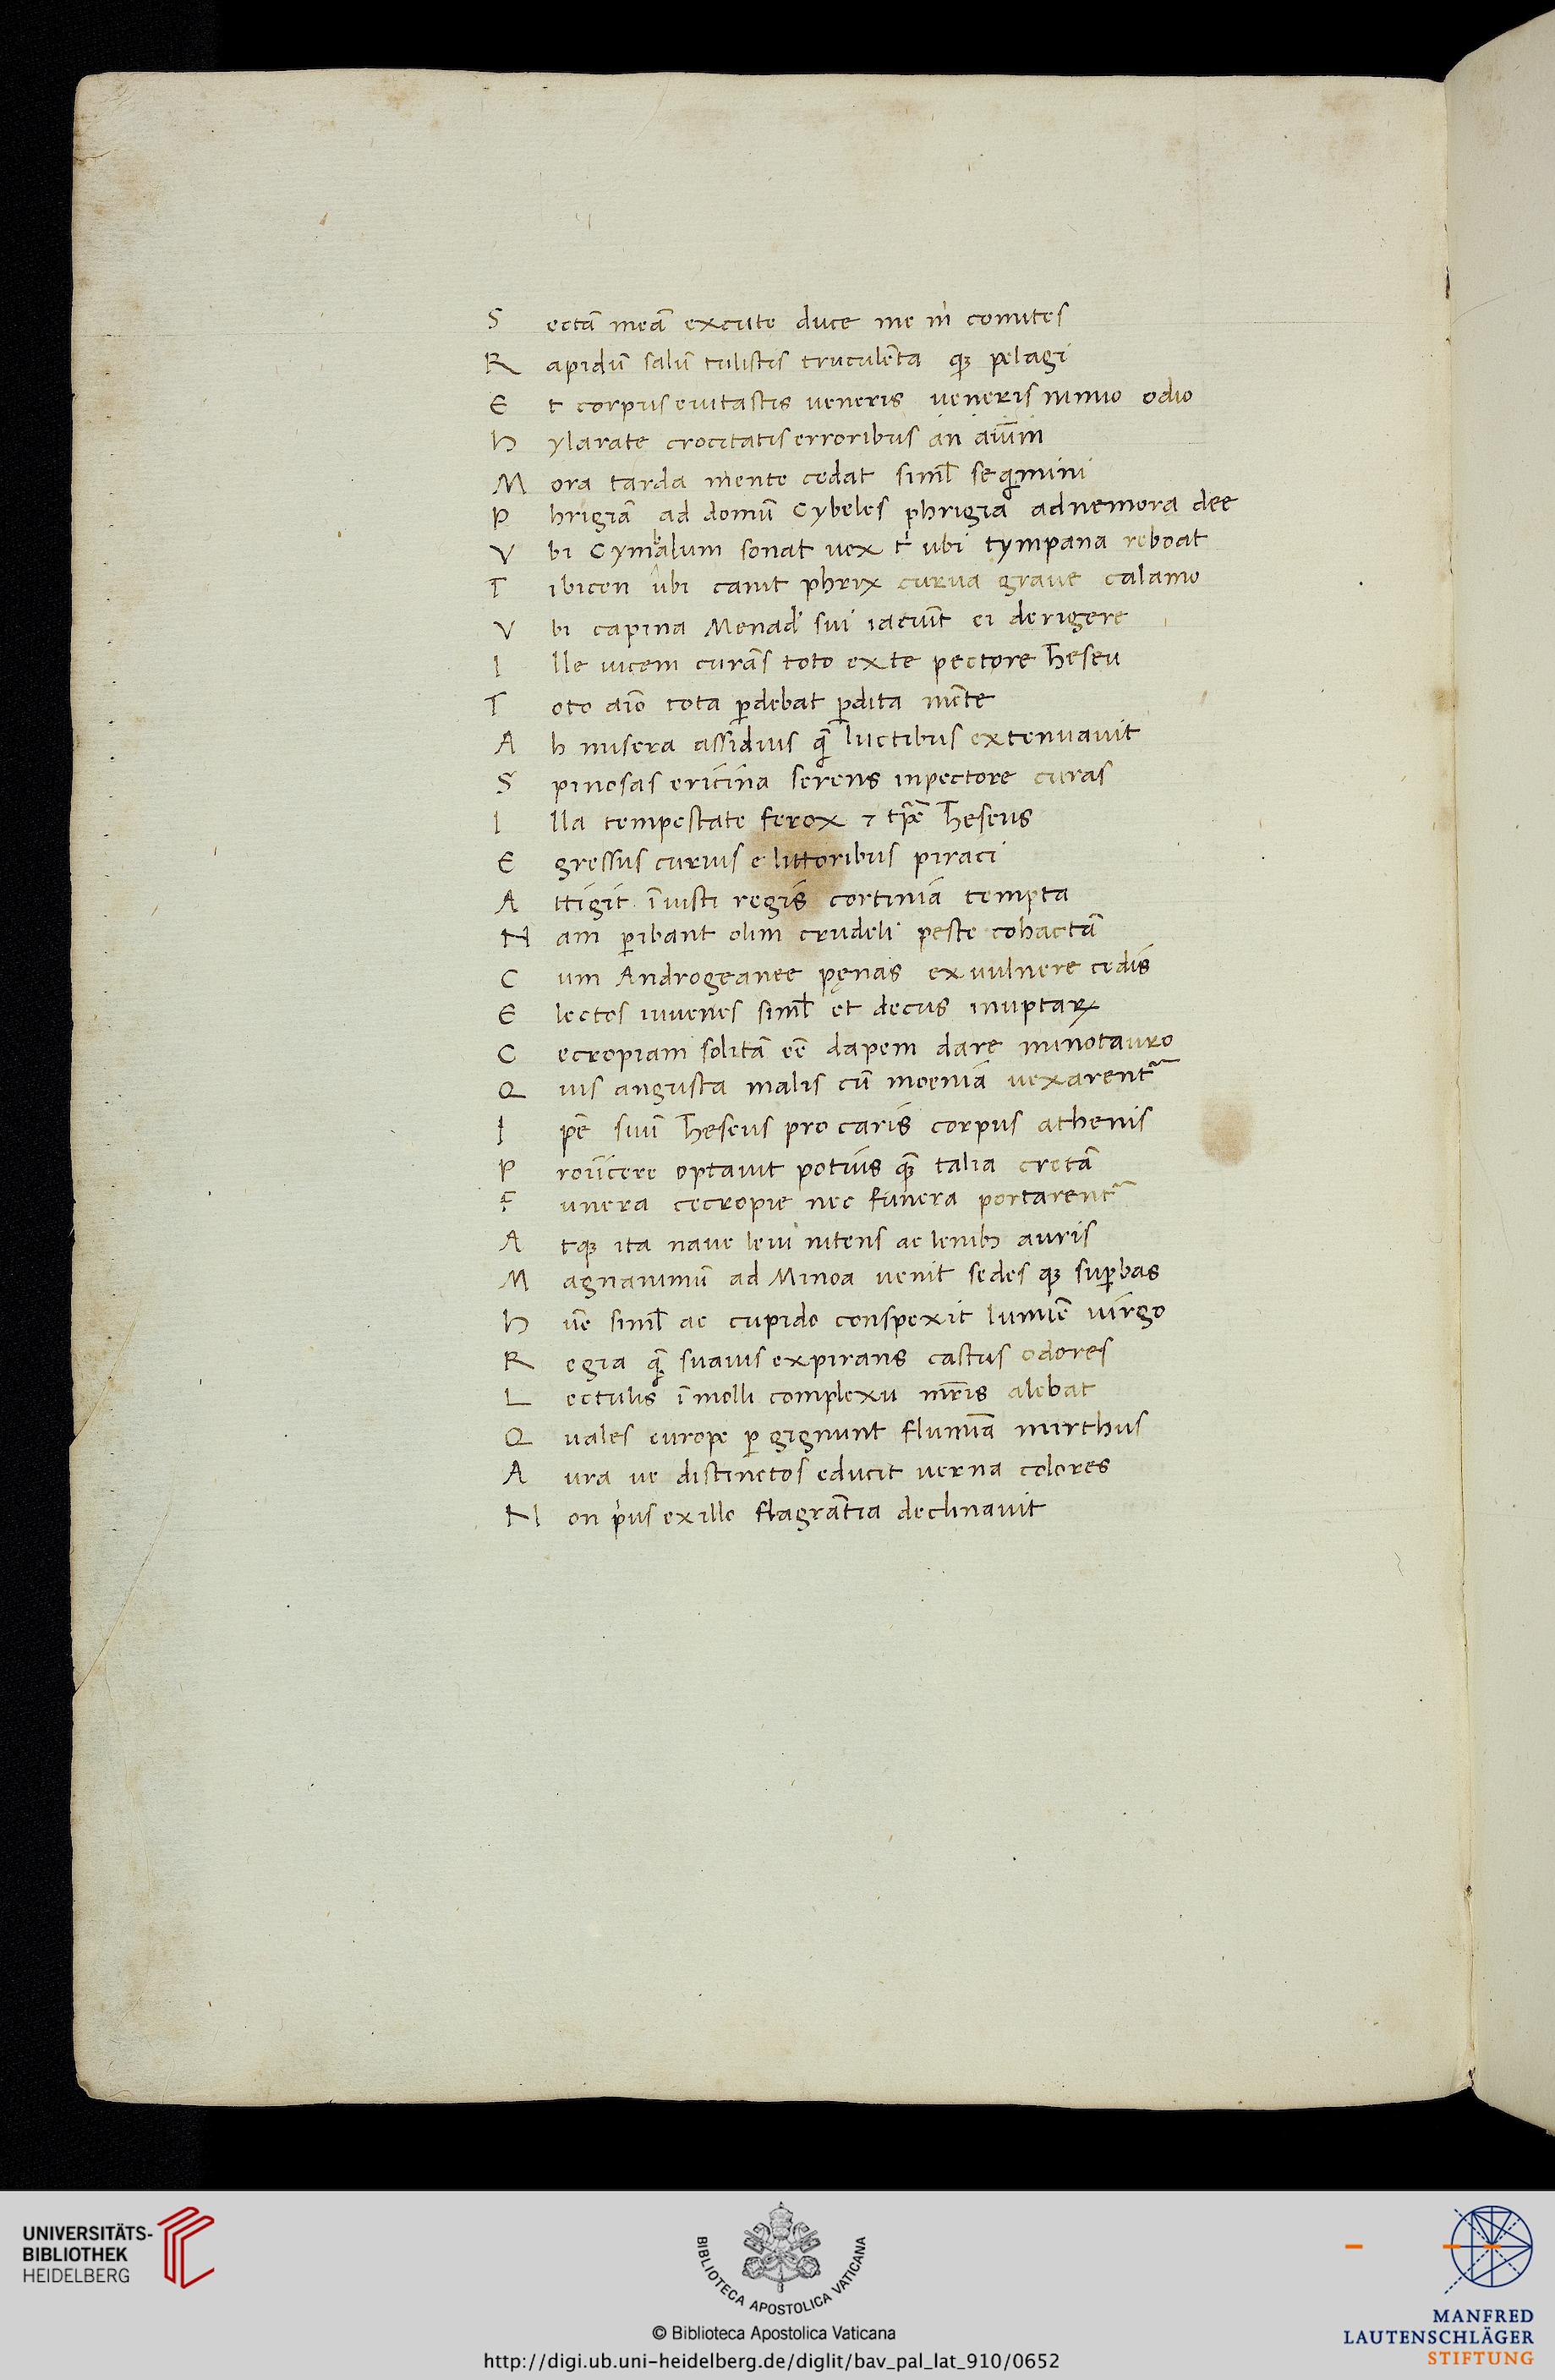 S ectā meā excute duce me m̀ comites
R apidū salū tulistis truculēta qꝫ pelagi
E t corpus euitastis veneris veneris nimio odio
H ylarate crocitatis erroribus an aiūm
M ora tarda mente cedat siml̄ seqimini
P hrigiā ad domū Cybeles phrigia ad nemora dee
V bi Cymbalum sonat vox t̀ ubi tympana reboat
T ibicen ubi canit phrix curua graue calamo
V bi capina Menad' sui iaciūt ei derigere
I lle uicem curās toto ex te pectore Theseu
T oto aīo tota ꝑdebat ꝑdita mēte
A h misera assiduis q̄ luctibus extenuauit
S pinosas ericina serens in pectore curas
I lla tempestate ferox ⁊ tp̄e Theseus
E gressus curuis e littoribus piraei
A ttigit īiusti regis cortinia tempta
N am ꝑibant olim crudeli peste cohactā
C um Androgeanee pęnas ex uulnere cedis
E lectos iuuenes siml̄ et decus inuptaꝝ
C ecropiam solitā eē dapem dare minotauro
Q uis angusta malis cū moeniā uexarent᷑
I pē suū Theseus pro caris corpus athenis
P roiicere optauit potius qꝫ̄ talia cretā
F unera cecropie nec funera portarent᷑
A tqꝫ ita naue leui nitens ac lenibꝫ auris
M agnanimū ad Minoa venit sedes qꝫ suꝑbas
H ūc siml̄ ac cupido conspexit lumīe uirgo
R egia q̄ suauis expirans castus odores
L ectulis ī molli complexu mr̄is alebat
Q uales europe ꝑ gignunt flumīa mirthus
A ura ue distinctos educit verna colores
N on pͥus ex illo flagrātia declinauit
UNIVERSITÄTS-
BIBLIOTHEK
HEIDELBERG
BIBLIOTECA APOSTOLICA VATICANA
© Biblioteca Apostolica Vaticana
http://digi.ub.uni-heidelberg.de/diglit/bav_pal_lat_910/0652
MANFRED
LAUTENSCHLÄGER
STIFTUNG